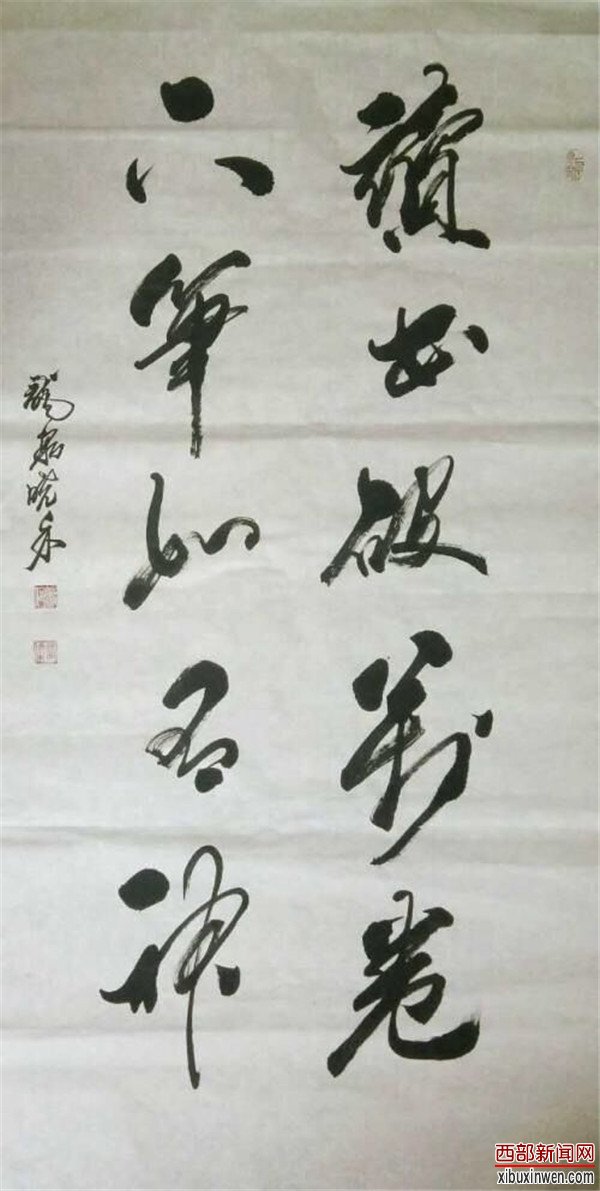 讀書破萬卷
下筆如有神
西部新闻网
xibuxinwen.com